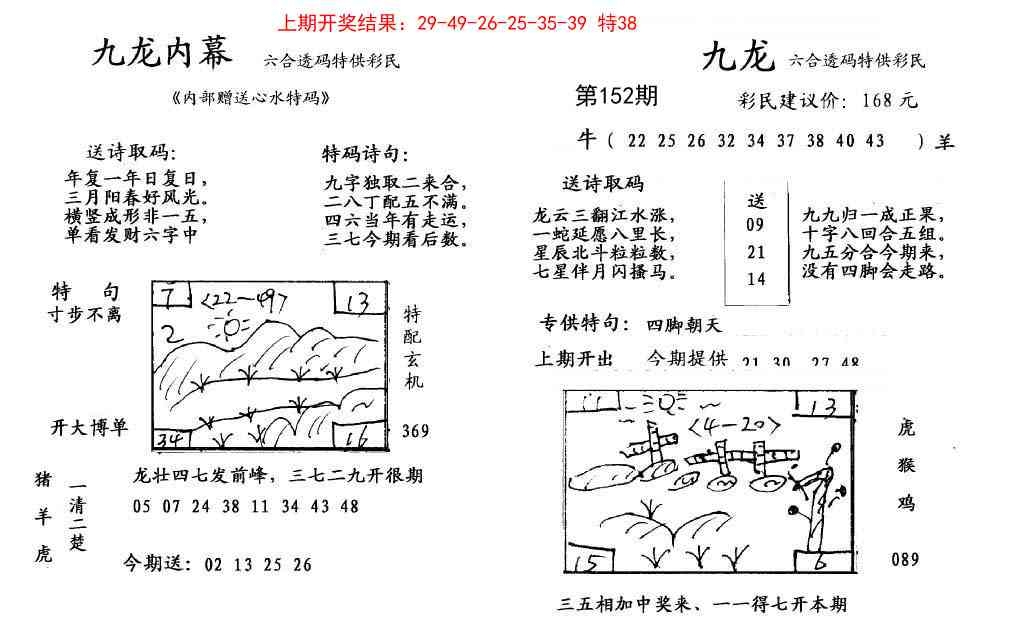 上期开奖结果：29-49-26-25-35-39 特38
九龙内幕 六合透码特供彩民
《内部赠送心水特码》
送诗取码：
年复一年日复日，
三月阳春好风光。
横竖成形非一五，
单看发财六字中
特码诗句：
九字独取二来合，
二八丁配五不满。
四六当年有走运，
三七今期看后数。
特 句
寸步不离
开大博单
7 <22-49> 13
2
34 16
特配玄机
369
猪羊虎
一清二楚
龙壮四七发前峰，三七二九开很期
05 07 24 38 11 34 43 48
今期送：02 13 25 26
九龙 六合透码特供彩民
第152期 彩民建议价：168元
牛（ 22 25 26 32 34 37 38 40 43 ）羊
送诗取码
龙云三翻江水涨，
一蛇延愿八里长，
星辰北斗粒粒数，
七星伴月闪搔马。
送
09
21
14
九九归一成正果，
十字八回合五组。
九五分合今期来，
没有四脚会走路。
专供特句：四脚朝天
上期开出 今期提供 21 30 27 48
11 13
<4-20>
15 6
虎
猴
鸡
089
三五相加中奖来、一一得七开本期